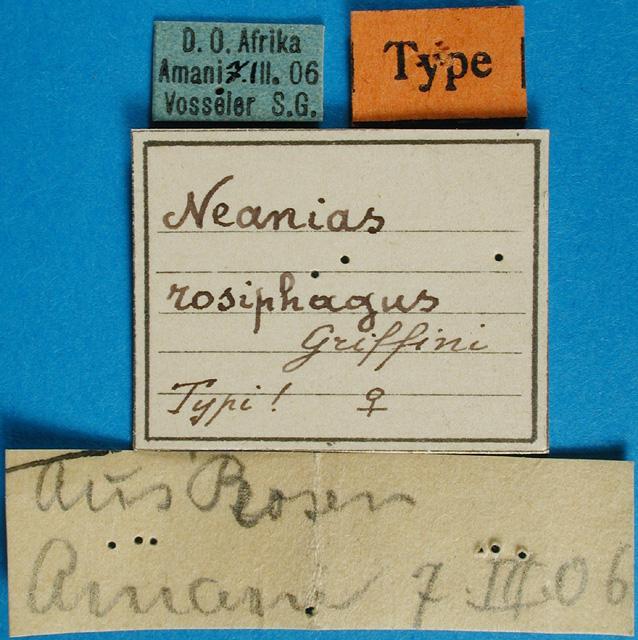 D. O. Afrika
Amani 7.III. 06
Vosseler S.G.
Type
Neanias
rosiphagus
Griffini
Typi! ♀
Aus Rosen
Amani 7.III.06